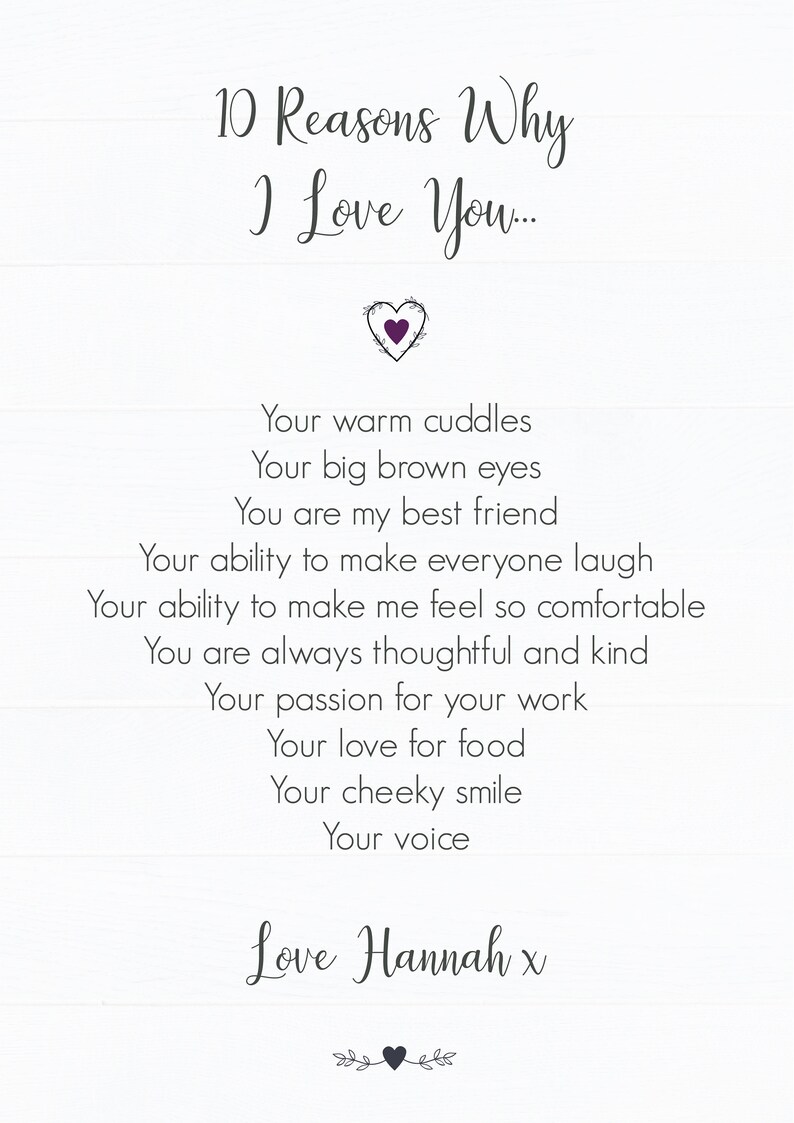 10 Reasons Why
I Love You...
Your warm cuddles
Your big brown eyes
You are my best friend
Your ability to make everyone laugh
Your ability to make me feel so comfortable
You are always thoughtful and kind
Your passion for your work
Your love for food
Your cheeky smile
Your voice
Love Hannah x